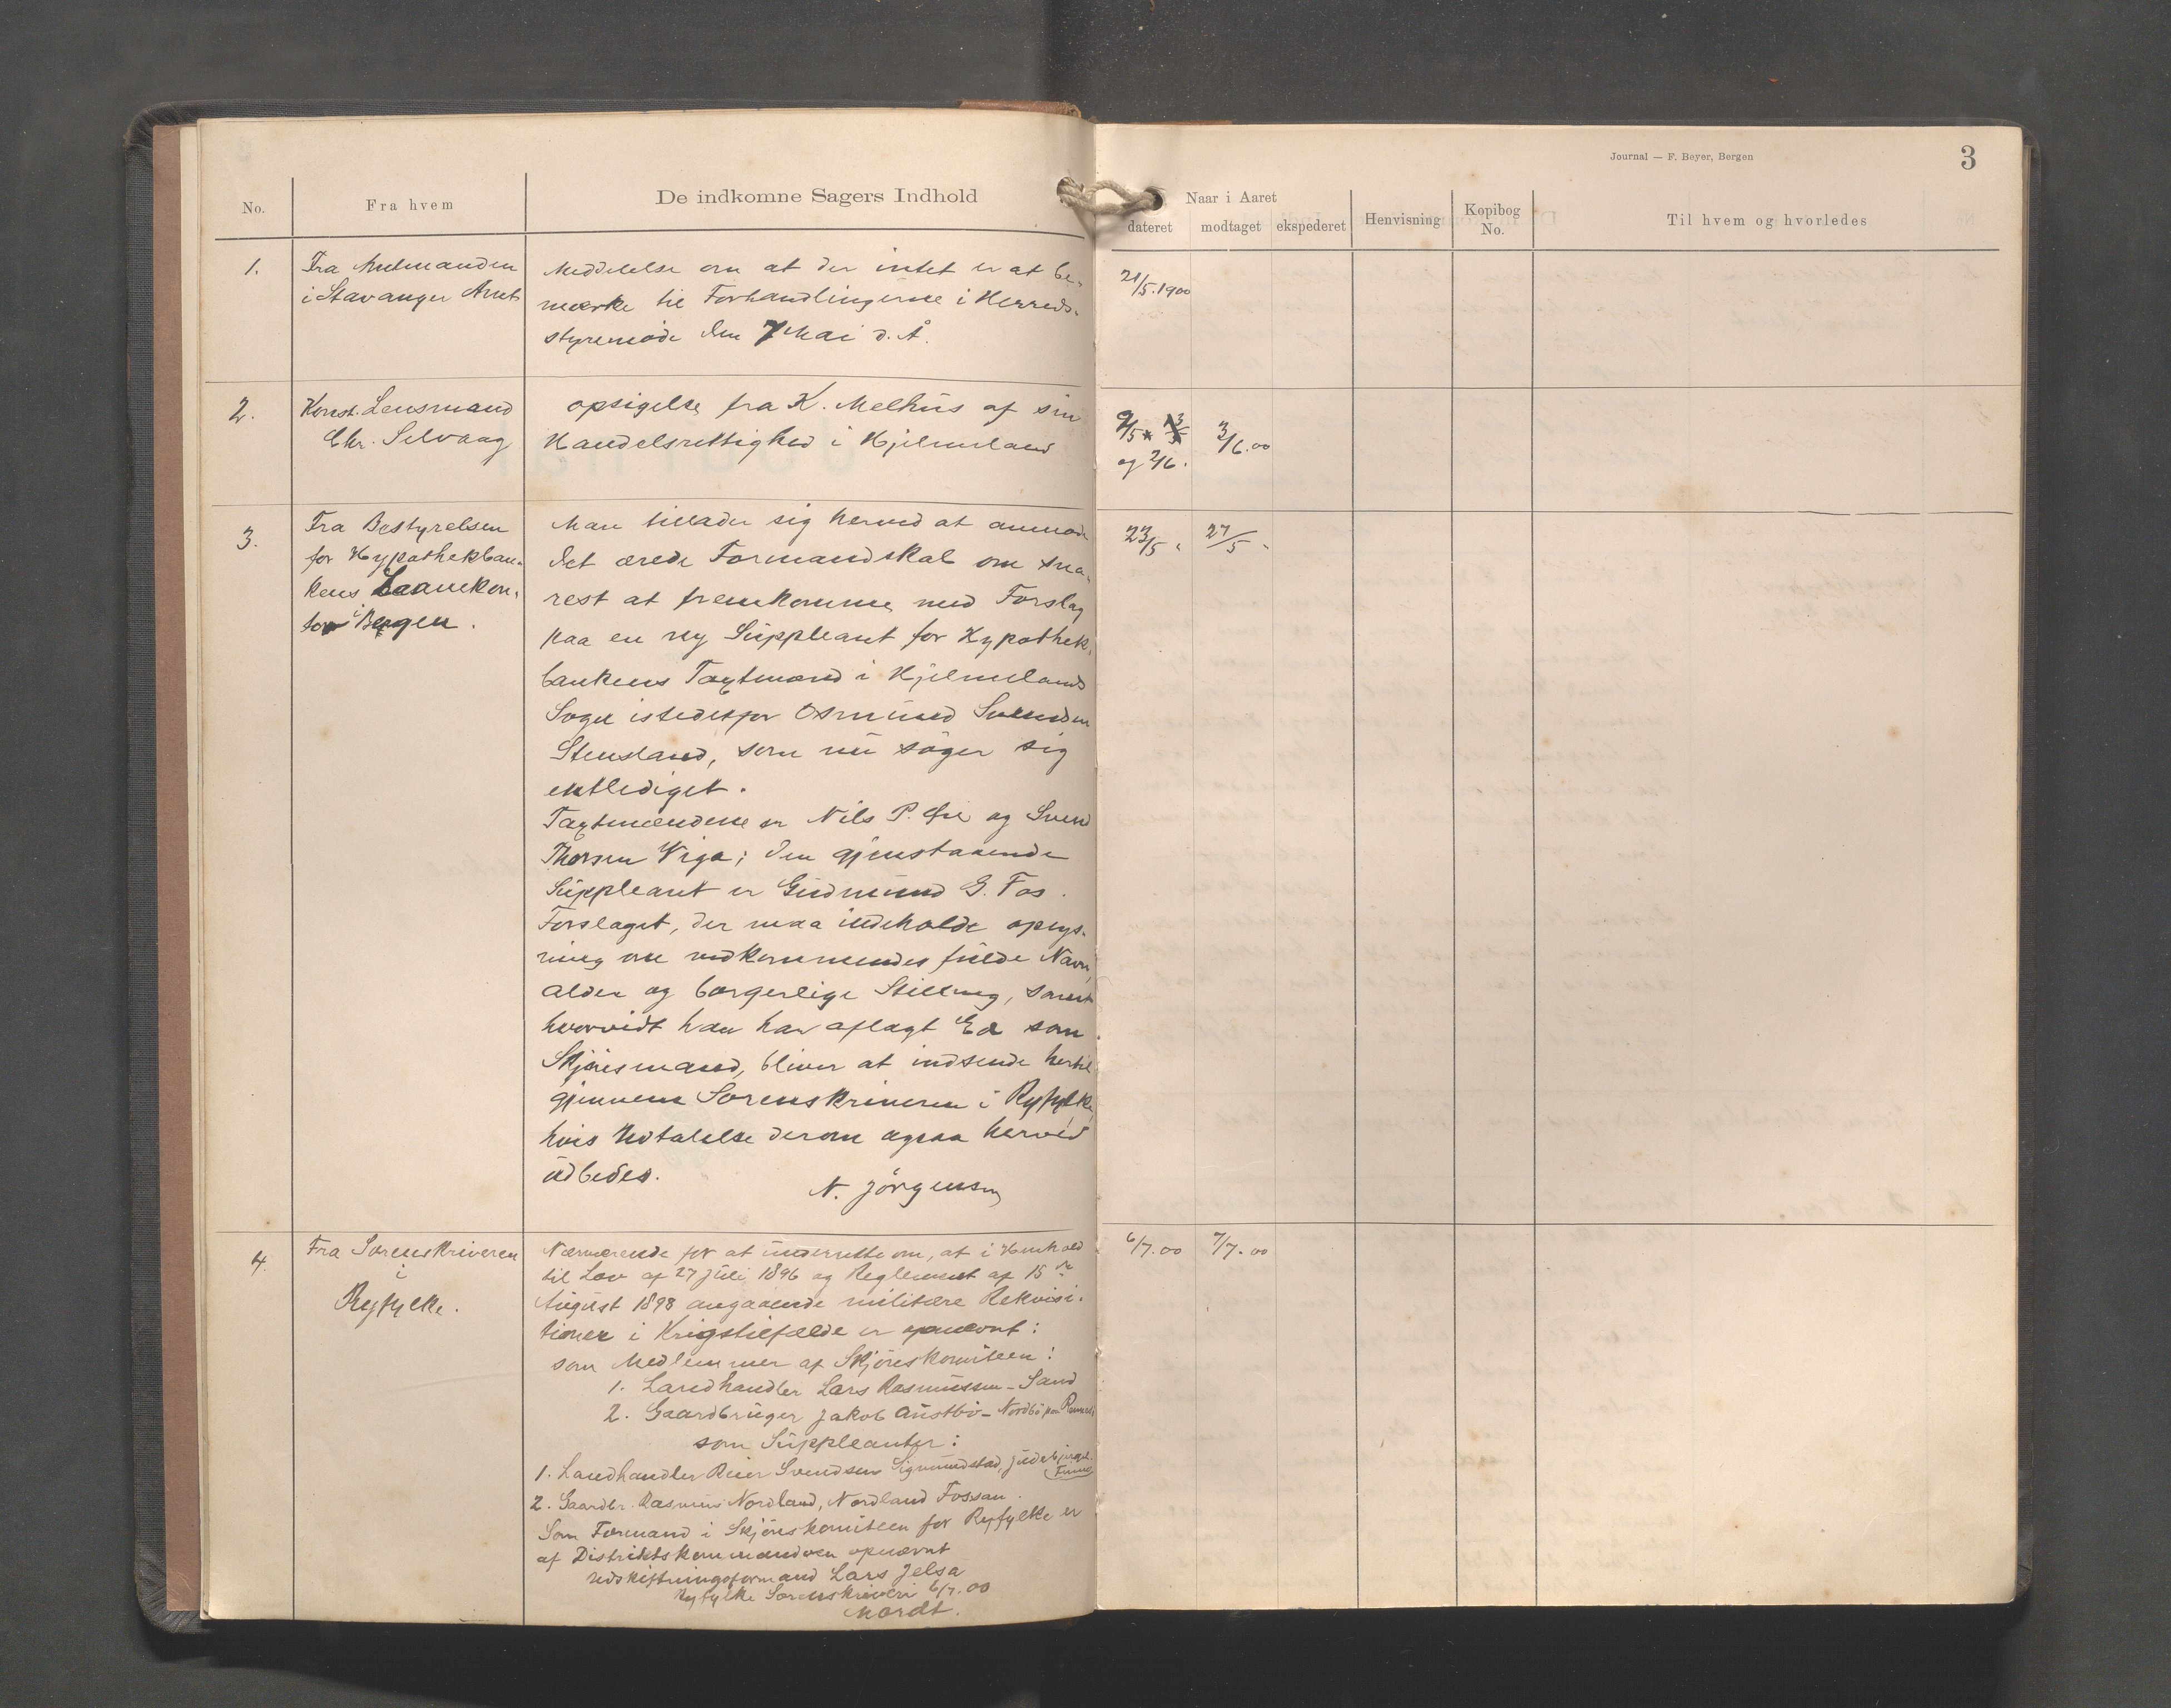 Journal — F. Beyer, Bergen
3
No.
Fra hvem
De indkomne Sagers Indhold
Naar i Aaret
dateret
modtaget
ekspederet
Henvisning
Kopibog
No.
Til hvem og hvorledes
1.
Fra Amtmanden
i Stavanger Amt
Meddelelse om at der intet er at be-
mærke til Forhandlingerne i Herreds-
styremøde den 7 Mai d. Å.
21/5.1900
2.
Konst. Lensmand
Chr. Selvaag
opsigelse fra K. Melhus af sin
Handelsrettighed i Hjelmeland
9/5
og 2/6.
3/6.00
3.
Fra Bestyrelsen
for Hypothekban-
kens Laanekon-
tor i Bergen.
Man tillader sig herved at anmode
det ærede Formandskab om sna-
rest at fremkomme med Forslag
paa en ny Suppleant for Hypothek-
bankens Taxtmænd i Hjelmelands
Sogn istedetfor Osmund Svendsen
Stensland, som nu søger sig
entlediget.
Taxtmændene er Nils P. Øie og Svend
Thorsen Viga; den gjenstaaende
Suppleant er Gudmund G. Fos.
Forslaget, der maa indeholde oplys-
ning om vedkommendes fulde Navn,
alder og borgerlige Stilling, samt
hvorvidt han har aflagt Ed som
Skjønsmand, bliver at indsende hertil
gjennem Sorenskriveren i Ryfylke,
hvis Udtalelse derom ogsaa herved
udbedes.
N. Jörgensen
23/5
27/5
4.
Fra Sorenskriveren
i
Ryfylke.
Nærværende for at underrette om, at i Henhold
til Lov af 27 Juli 1896 og Reglement af 15de
August 1898 angaaende militære Rekvisi-
tioner i Krigstilfælde er opnævnt:
som Medlemmer af Skjønskomiteen:
1. Landhandler Lars Rasmussen - Sand
2. Gaardbruger Jakob Austbø - Nordbø paa
som Suppleanter:
1. Landhandler Reier Svendsen Sigmundstad, Judeb
Finnø
2. Gaardbr. Rasmus Nordland, Nordland Fossan.
Som Formand i Skjønskomiteen for Ryfylke er
af Distriktskommandoen opnævnt
Udskiftningsformand Lars Jelsa
Ryfylke Sorenskriveri 6/7.00
Mordt.
6/7.00
7/7.00